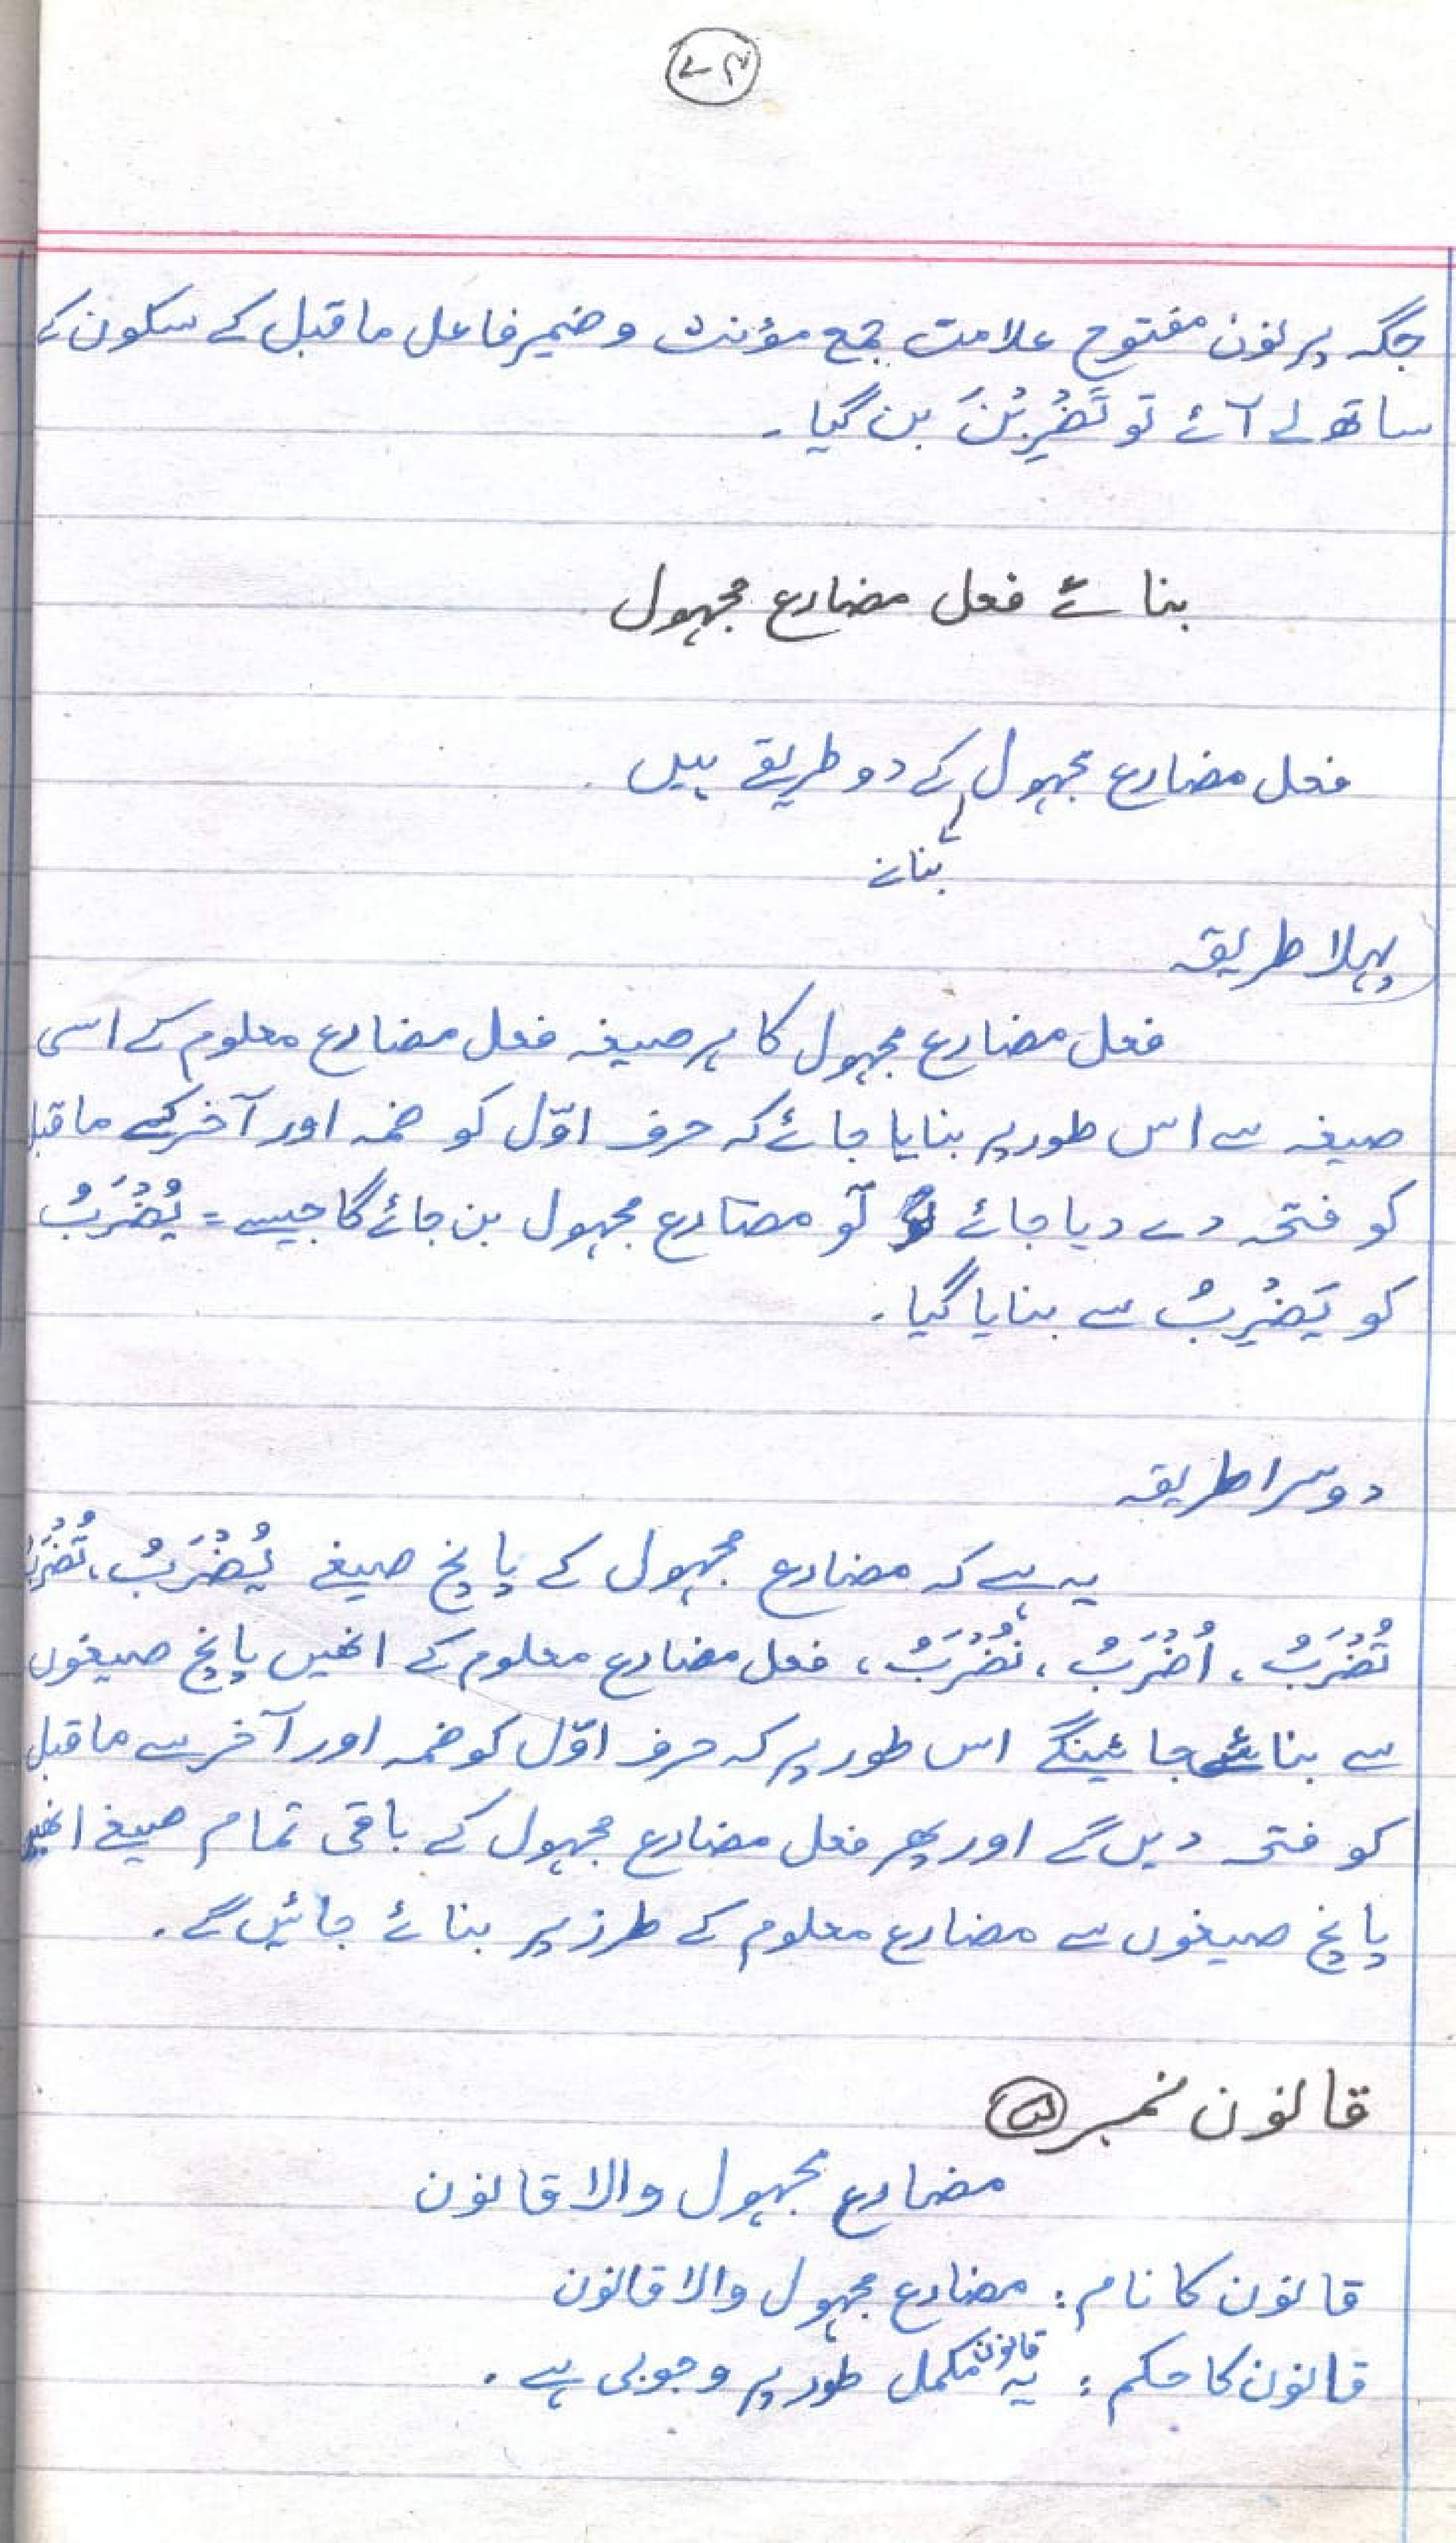 ۷۴
جگہ پر نون مفتوح علامت جمع مؤنث و ضمیر فاعل ما قبل کے سکون کے
ساتھ لے آئے تو تَضْرِبْنَ بن گیا۔
بنائے فعل مضارع مجہول
فعل مضارع مجہول کے دو طریقے ہیں۔
بنانے
پہلا طریقہ
فعل مضارع مجہول کا ہر صیغہ فعل مضارع معلوم کے اسی
صیغہ سے اس طور پر بنایا جائے کہ حرف اوّل کو ضمہ اور آخر کے ما قبل
کو فتحہ دے دیا جائے تو مضارع مجہول بن جائے گا جیسے = يُضْرَبُ
کو يَضْرِبُ سے بنایا گیا۔
دوسرا طریقہ
یہ ہے کہ مضارع مجہول کے پانچ صیغے يُضْرَبُ، تُضْرَبُ
تُضْرَبُ، اُضْرَبُ، نُضْرَبُ، فعل مضارع معلوم کے انھیں پانچ صیغوں
سے بنائے جائینگے اس طور پر کہ حرف اوّل کو ضمہ اور آخر سے ما قبل
کو فتحہ دیں گے اور پھر فعل مضارع مجہول کے باقی تمام صیغے انھیں
پانچ صیغوں سے مضارع معلوم کے طرز پر بنائے جائیں گے۔
قانون نمبر
مضارع مجہول والا قانون
قانون کا نام: مضارع مجہول والا قانون
قانون کا حکم: یہ قانون مکمل طور پر وجوبی ہے۔